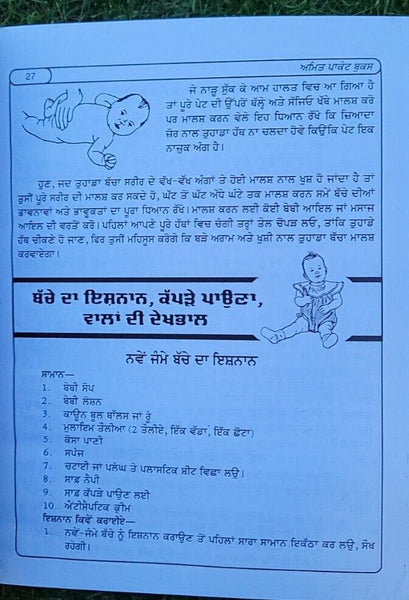 27
ਅਮਿਤ ਪਾਕੇਟ ਬੁਕਸ
ਜੇ ਨਾੜੂ ਸੁੱਕ ਕੇ ਆਮ ਹਾਲਤ ਵਿਚ ਆ ਗਿਆ ਹੈ
ਤਾਂ ਪੂਰੇ ਪੇਟ ਦੀ ਉੱਪਰੋਂ ਥੱਲ੍ਹੇ ਅਤੇ ਸੱਜਿਓਂ ਖੱਬੇ ਮਾਲਸ਼ ਕਰੋ
ਪਰ ਮਾਲਸ਼ ਕਰਨ ਵੇਲੇ ਇਹ ਧਿਆਨ ਰੱਖੋ ਕਿ ਜ਼ਿਆਦਾ
ਜ਼ੋਰ ਨਾਲ ਤੁਹਾਡਾ ਹੱਥ ਨਾ ਚਲਦਾ ਹੋਵੇ ਕਿਉਂਕਿ ਪੇਟ ਇਕ
ਨਾਜ਼ੁਕ ਅੰਗ ਹੈ।
ਹੁਣ, ਜਦ ਤੁਹਾਡਾ ਬੱਚਾ ਸਰੀਰ ਦੇ ਵੱਖ-ਵੱਖ ਅੰਗਾਂ ਤੇ ਹੋਈ ਮਾਲਸ਼ ਨਾਲ ਖੁਸ਼ ਹੋ ਜਾਂਦਾ ਹੈ ਤਾਂ
ਤੁਸੀਂ ਪੂਰੇ ਸਰੀਰ ਦੀ ਮਾਲਸ਼ ਕਰ ਸਕਦੇ ਹੋ, ਘੱਟ ਤੋਂ ਘੱਟ ਅੱਧੇ ਘੰਟੇ ਤਕ ਮਾਲਸ਼ ਕਰਨ ਸਮੇਂ ਬੱਚੇ ਦੀਆਂ
ਭਾਵਨਾਵਾਂ ਅਤੇ ਭਾਵੁਕਤਾਂ ਦਾ ਪੂਰਾ ਧਿਆਨ ਰੱਖੋ। ਮਾਲਸ਼ ਕਰਨ ਲਈ ਕੋਈ ਬੇਬੀ ਆਇਲ ਜਾਂ ਮਸਾਜ
ਆਇਲ ਦੀ ਵਰਤੋਂ ਕਰੋ। ਪਹਿਲਾਂ ਆਪਣੇ ਪੂਰੇ ਹੱਥਾਂ ਵਿਚ ਚੰਗੀ ਤਰ੍ਹਾਂ ਤੇਲ ਚੋਪੜ ਲਓ, ਤਾਂਕਿ ਤੁਹਾਡੇ
ਹੱਥ ਚੀਕਣੇ ਹੋ ਜਾਣ, ਫਿਰ ਤੁਸੀਂ ਮਹਿਸੂਸ ਕਰੋਗੇ ਕਿ ਬੜੇ ਅਰਾਮ ਅਤੇ ਖੁਸ਼ੀ ਨਾਲ ਤੁਹਾਡਾ ਬੱਚਾ ਮਾਲਸ਼
ਕਰਵਾਏਗਾ।
ਬੱਚੇ ਦਾ ਇਸ਼ਨਾਨ, ਕੱਪੜੇ ਪਾਉਣਾ,
ਵਾਲਾਂ ਦੀ ਦੇਖਭਾਲ
ਨਵੇਂ ਜੰਮੇ ਬੱਚੇ ਦਾ ਇਸ਼ਨਾਨ
ਸਾਮਾਨ—
1. ਬੇਬੀ ਸੋਪ
2. ਬੇਬੀ ਲੋਸ਼ਨ
3. ਕਾਉਨ ਬੂਲ ਥਾੱਲਸ ਜਾਂ ਰੂੰ
4. ਮੁਲਾਇਮ ਤੌਲੀਆ (2 ਤੌਲੀਏ, ਇੱਕ ਵੱਡਾ, ਇੱਕ ਛੋਟਾ)
5. ਕੋਸਾ ਪਾਣੀ
6. ਸਪੰਜ
7. ਚਟਾਈ ਜਾਂ ਪਲੰਘ ਤੇ ਪਲਾਸਟਿਕ ਸ਼ੀਟ ਵਿਛਾ ਲਓ।
8. ਸਾਫ਼ ਨੈਪੀ
9. ਸਾਫ਼ ਕੱਪੜੇ ਪਾਉਣ ਲਈ
10. ਐਂਟੀਸੈਪਟਿਕ ਕ੍ਰੀਮ
ਇਸ਼ਨਾਨ ਕਿਵੇਂ ਕਰਾਈਏ—
1. ਨਵੇਂ-ਜੰਮੇ ਬੱਚੇ ਨੂੰ ਇਸ਼ਨਾਨ ਕਰਾਉਣ ਤੋਂ ਪਹਿਲਾਂ ਸਾਰਾ ਸਾਮਾਨ ਇਕੱਠਾ ਕਰ ਲਓ, ਸੌਖ
ਰਹੇਗੀ।